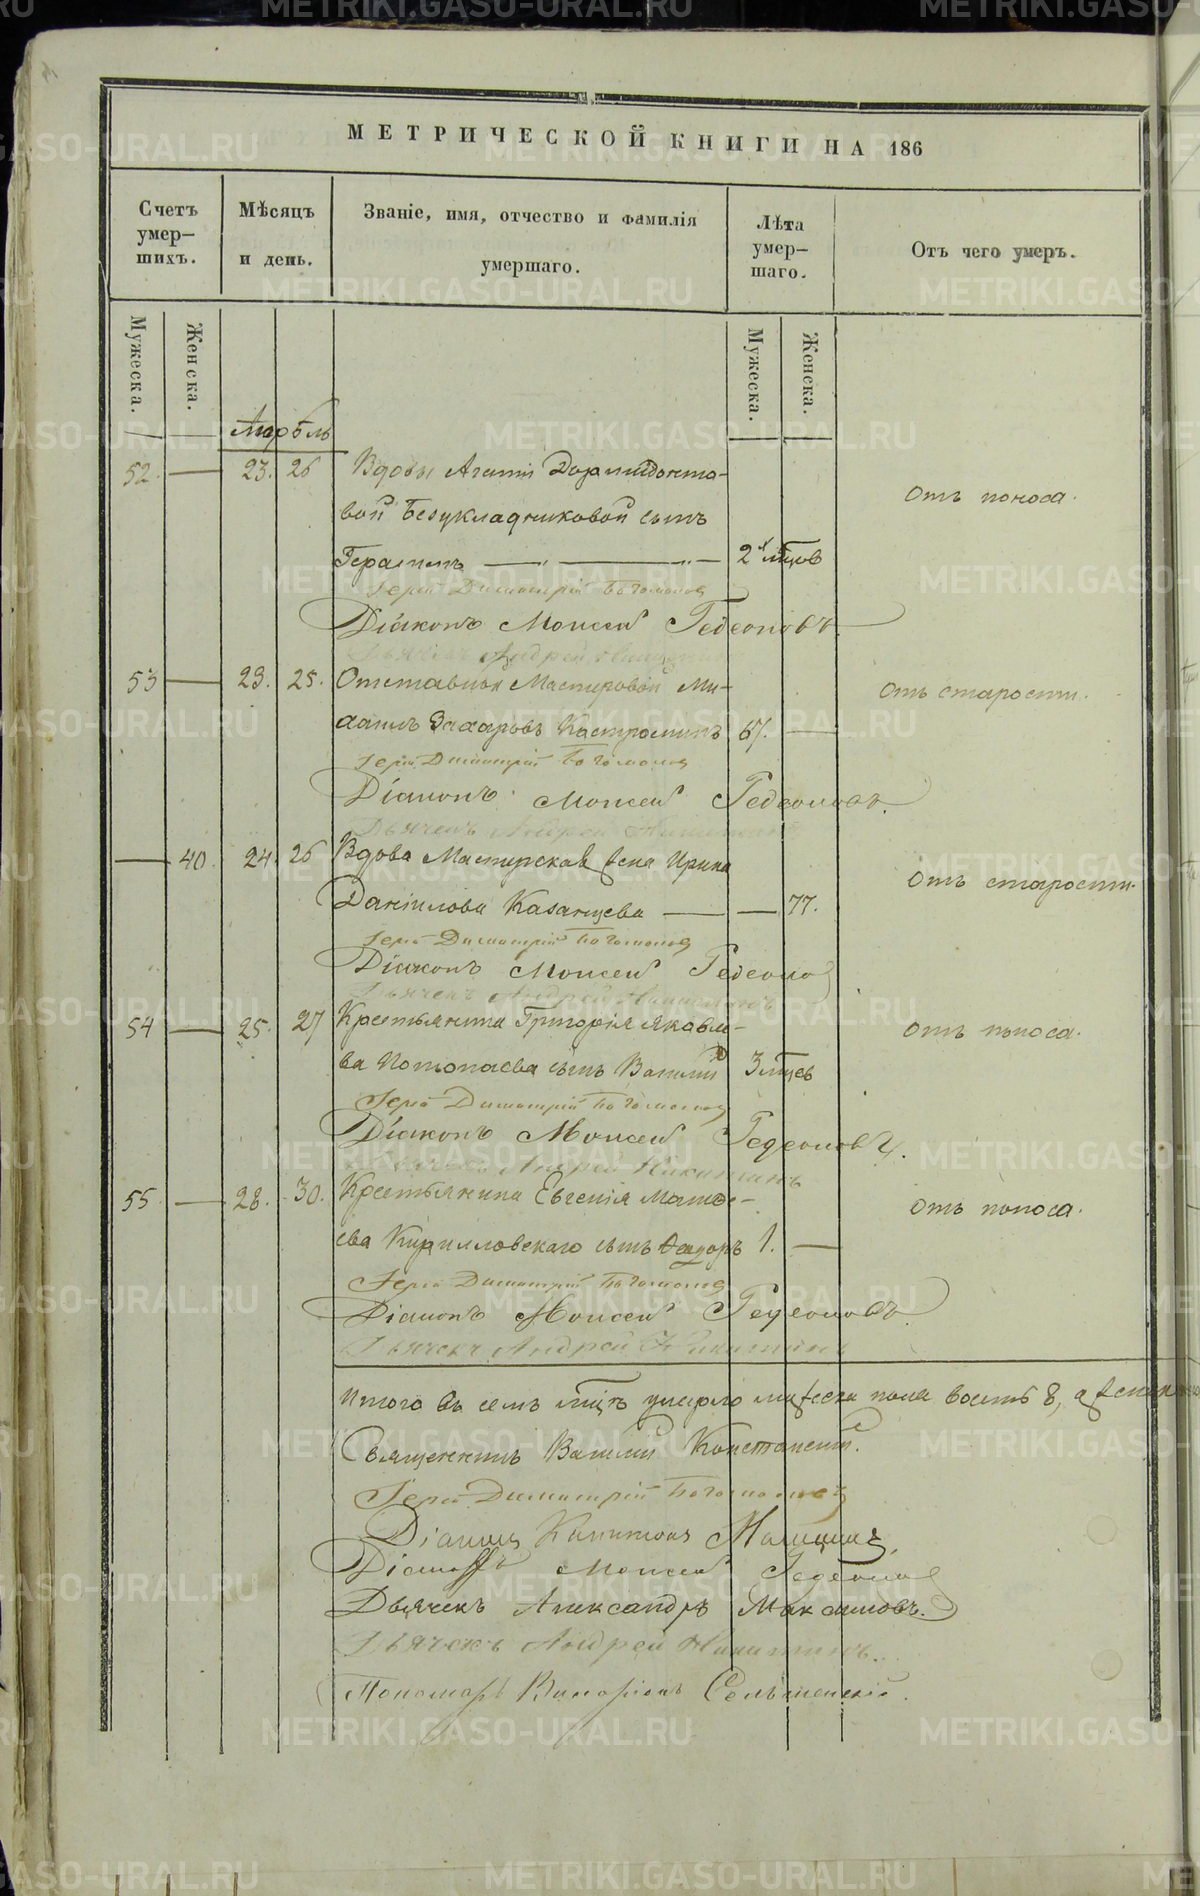 МЕТРИЧЕСКОЙ КНИГИ НА 186
Счетъ умер-шихъ.
Мѣсяцъ и день.
Званіе, имя, отчество и фамилія умершаго.
Лѣта умер-шаго.
Отъ чего умеръ.
Мужеска.
Женска.
Мужеска.
Женска.
Апрѣль
52. — 23. 26 Вдовы Агапіи Дормидонто-
Отъ поноса.
вой Безукладниковой сынъ
Герасимъ — 2 мѣсцов
Іерей Димитрій Богомолов
Діаконъ Моисей Гедеоновъ
Дьячекъ Андрей Никитинъ
53 — 23. 25. Отставной Мастеровой Ми-
Отъ старости.
хаилъ Захаровъ Костроминъ 67. —
Іерей Димитрій Богомолов
Діаконъ Моисей Гедеоновъ.
Дьячекъ Андрей Никитинъ
— 40. 24. 26 Вдова Мастерская жена Ирина
Отъ старости.
Даніилова Казанцева — — 77.
Іерей Димитрій Богомолов
Діаконъ Моисей Гедеонов
Дьячекъ Андрей Никитинъ
54 — 25. 27 Крестьянина Григорія Яковле-
Отъ поноса.
ва Потопаева сынъ Василій 3 мѣсцев
Іерей Димитрій Богомолов
Діаконъ Моисей Гедеоновъ.
Дьячекъ Андрей Никитинъ
55 — 28. 30. Крестьянина Евгенія Матве-
Отъ поноса.
ева Кирилловскаго сынъ Ѳедоръ 1. —
Іерей Димитрій Богомолов
Діаконъ Моисей Гедеоновъ.
Дьячекъ Андрей Никитинъ
Итого въ семъ мѣсцѣ умерло мужеска пола восемь 8, а женска
Священникъ Василій
Іерей Димитрій Богомоловъ
Діаконъ Капитонъ
Діаконъ Моисей Гедеонов
Дьячекъ Александръ Максимовъ.
Дьячекъ Андрей Никитинъ.
Пономарь
METRIKI.GASO-URAL.RU